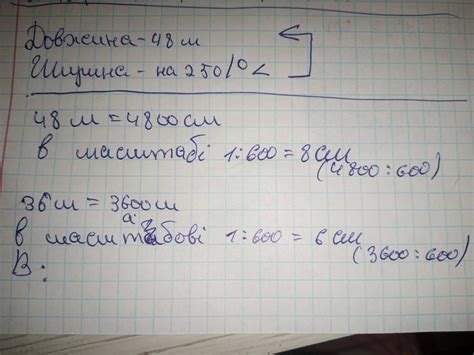 Довжина - 48 м
Ширина - на 25% <
48 м = 4800 см
в масштабі 1:600 = 8 см
(4800:600)
36 м = 3600 см
в масштабові 1:600 = 6 см
(3600:600)
В: